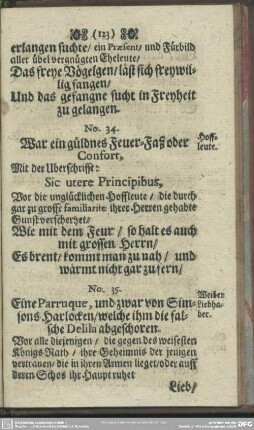 (123)
erlangen suchte/ ein Præsent/ und Fürbild
aller übel vergnügten Eheleute/
Das freye Vögelgen/ läst sich freywil-
lig fangen/
Und das gefangne sucht in Freyheit
zu gelangen.
No. 34.
War ein güldnes Feuer-Faß oder
Confort,
Hoff-
leute.
Mit der Uberschrifft:
Sic utere Principibus,
Vor die unglücklichen Hoffleute/ die durch
gar zu grosse familiarite ihrer Herren gehabte
Gunst verschertzet/
Wie mit dem Feur/ so halt es auch
mit grossen Herrn/
Es brent/ kommt man zu nah/ und
wärmt nicht gar zu fern/
No. 35.
Eine Parruque, und zwar von Sim-
sons Harlocken/ welche ihm die fal-
sche Delila abgeschoren.
Weiber
Liebha-
ber.
Vor alle diejenigen/ die gegen des weisesten
Königs Rath/ ihre Geheimnis der jenigen
vertrauen/ die in ihren Armen lieget/ oder auff
deren Schos ihr Haupt ruhet
Lieb/